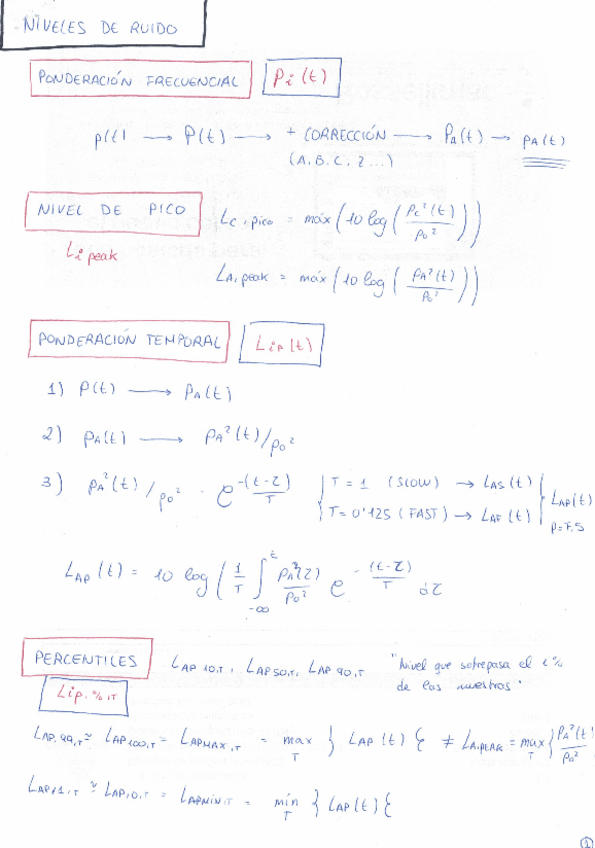 NIVELES DE RUIDO
PONDERACIÓN FRECUENCIAL Pi(t)
p(t) → P(t) → + CORRECCIÓN → PA(t) → pA(t)
(A, B, C, Z ...)
NIVEL DE PICO LC,pico = máx(10 log(pC²(t)/p0²))
Li peak
LA,peak = máx(10 log(pA²(t)/p0²))
PONDERACIÓN TEMPORAL Lip(t)
1) P(t) → PA(t)
2) pA(t) → pA²(t)/p0²
3) pA²(t)/p0² · e^-(t-τ)/T { T = 1 (SLOW) → LAS(t) } LAp(t)
T = 0'125 (FAST) → LAF(t) p=F,S
LAp(t) = 10 log(1/T ∫-∞^t pA²(τ)/p0² e^-(t-τ)/T dτ
PERCENTILES LAP10,T, LAP50,T, LAP90,T "Nivel que sobrepasa el i%
de las muestras"
Lip,%,T
LAP,99,T ≈ LAP100,T = LAPMAX,T = max T } LAP(t) { ≠ LA,PEAK = max T } PA²(t)/p0²
LAP,1,T ≈ LAP,0,T = LAPMIN,T = mín T } LAP(t) {
1